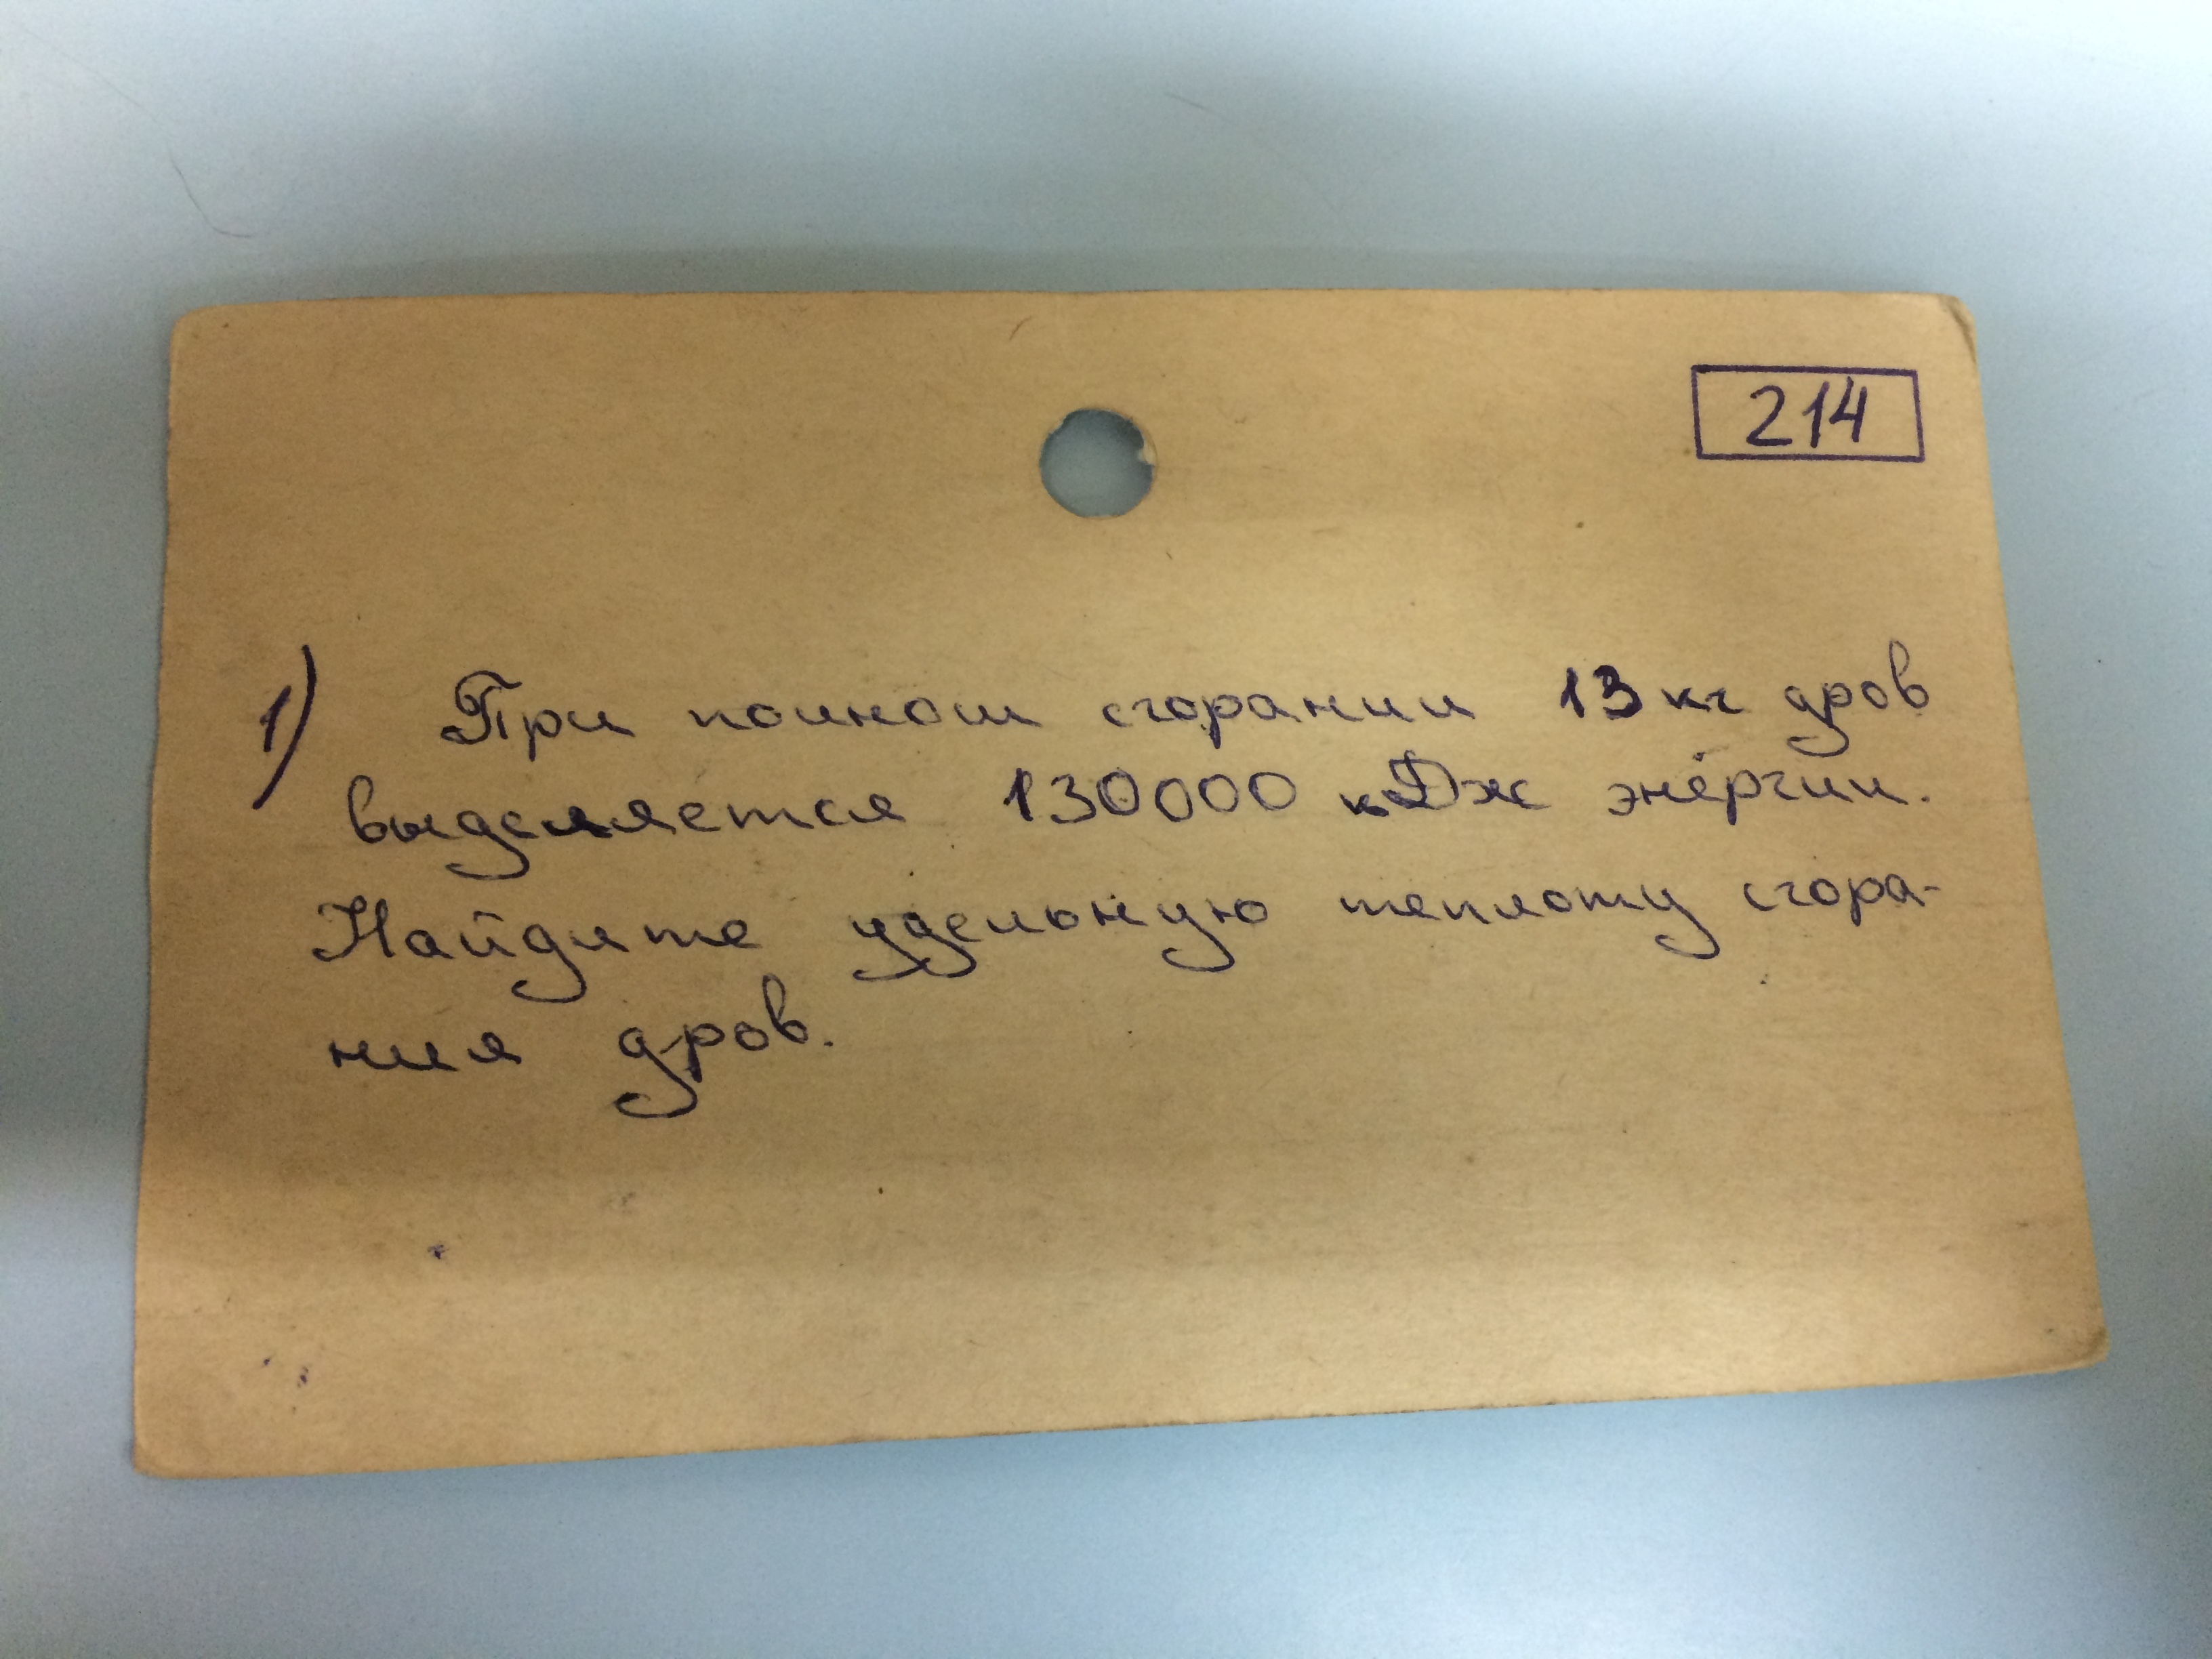 214
1) При полном сгорании 13 кг дров
выделяется 130000 кДж энергии.
Найдите удельную теплоту сгора-
ния дров.